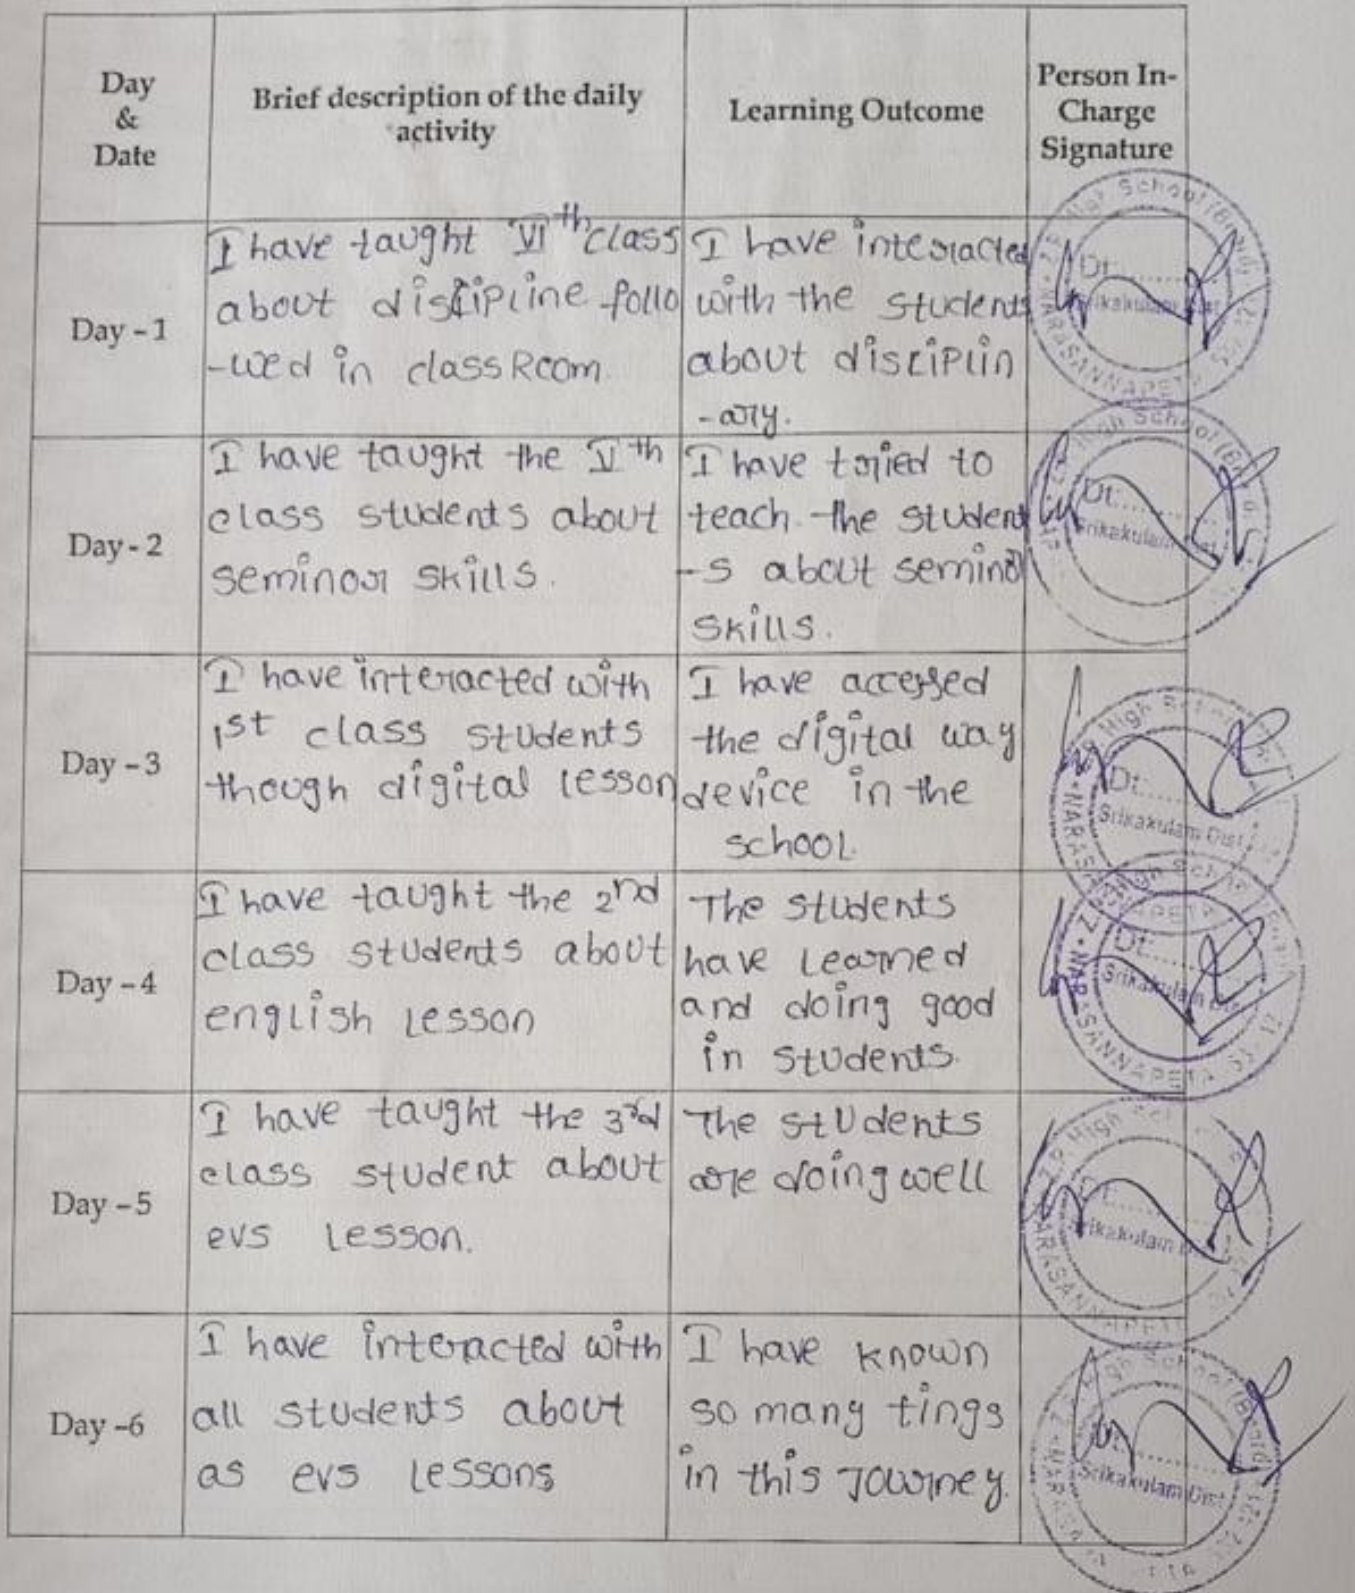 Day
&
Date
Brief description of the daily
activity
Learning Outcome
Person In-
Charge
Signature
Day - 1
I have taught VIth class
about discipline follo
-wed in classRoom.
I have interacted
with the students
about disciplin
-ary.
High School
Dt:
Srikakulam Dist
NARASANNAPETA
Day - 2
I have taught the Vth
class students about
seminar skills.
I have tried to
teach the student
-s about seminar
skills.
High School
Dt:
Srikakulam Dist
Day - 3
I have interacted with
1st class students
though digital lesson
I have accessed
the digital way
device in the
school.
High School
Dt:
Srikakulam Dist
NARASANNAPETA
Day - 4
I have taught the 2nd
class students about
english lesson
The students
have learned
and doing good
in students.
High School
Dt:
Srikakulam Dist
NARASANNAPETA
Day - 5
I have taught the 3rd
class student about
evs lesson.
The students
are doing well
Z.P. High School
Srikakulam Dist
NARASANNAPETA
Day -6
I have interacted with
all students about
as evs lessons
I have known
so many tings
in this Journey.
High School
Dt:
Srikakulam Dist